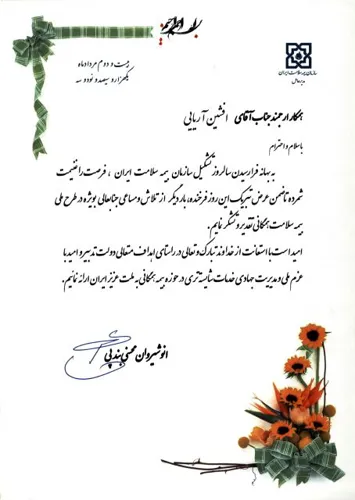 بسم الله الرحمن الرحیم
سازمان بیمه سلامت ایران
مدیرعامل
بیست و دوم مردادماه
یکهزار و سیصد و نود و سه
همکار ارجمند جناب آقای افشین آریایی
باسلام و احترام
به بهانه فرارسیدن سالروز تشکیل سازمان بیمه سلامت ایران ، فرصت را غنیمت
شمرده تا ضمن عرض تبریک این روز فرخنده، بار دیگر از تلاش و مساعی جنابعالی بویژه در طرح ملی
بیمه سلامت همگانی تقدیر و تشکر نمایم.
امید است با استعانت از خداوند تبارک و تعالی در راستای اهداف متعالی دولت تدبیر و امید با
عزم ملی و مدیریت جهادی خدمات شایسته تری در حوزه بیمه همگانی به ملت عزیز ایران ارائه نمائیم.
انوشیروان محسنی بندپی